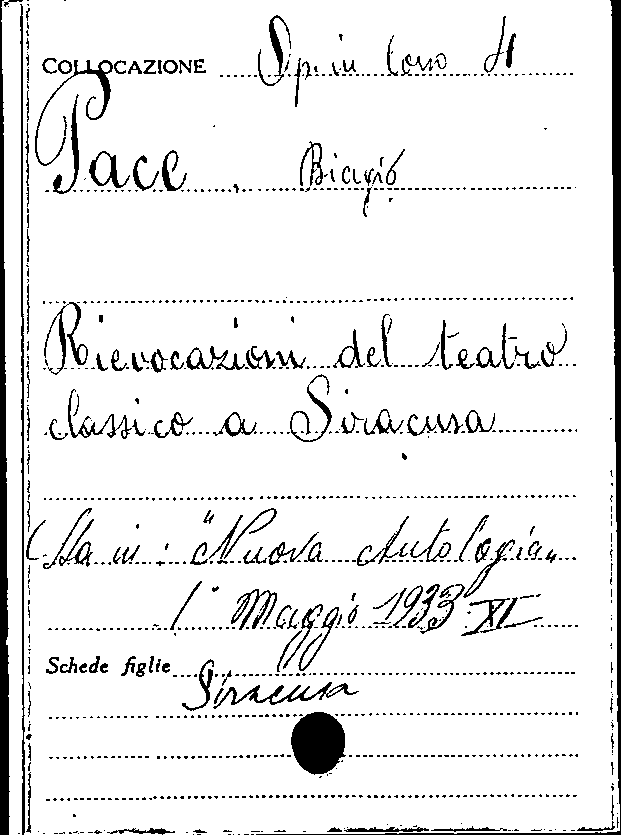 COLLOCAZIONE Op. in Corso 4
Pace, Biagio
Rievocazioni del teatro
classico a Siracusa
(Sta in: "Nuova Antologia„
1° Maggio 1933 XI
Schede figlie
Siracusa